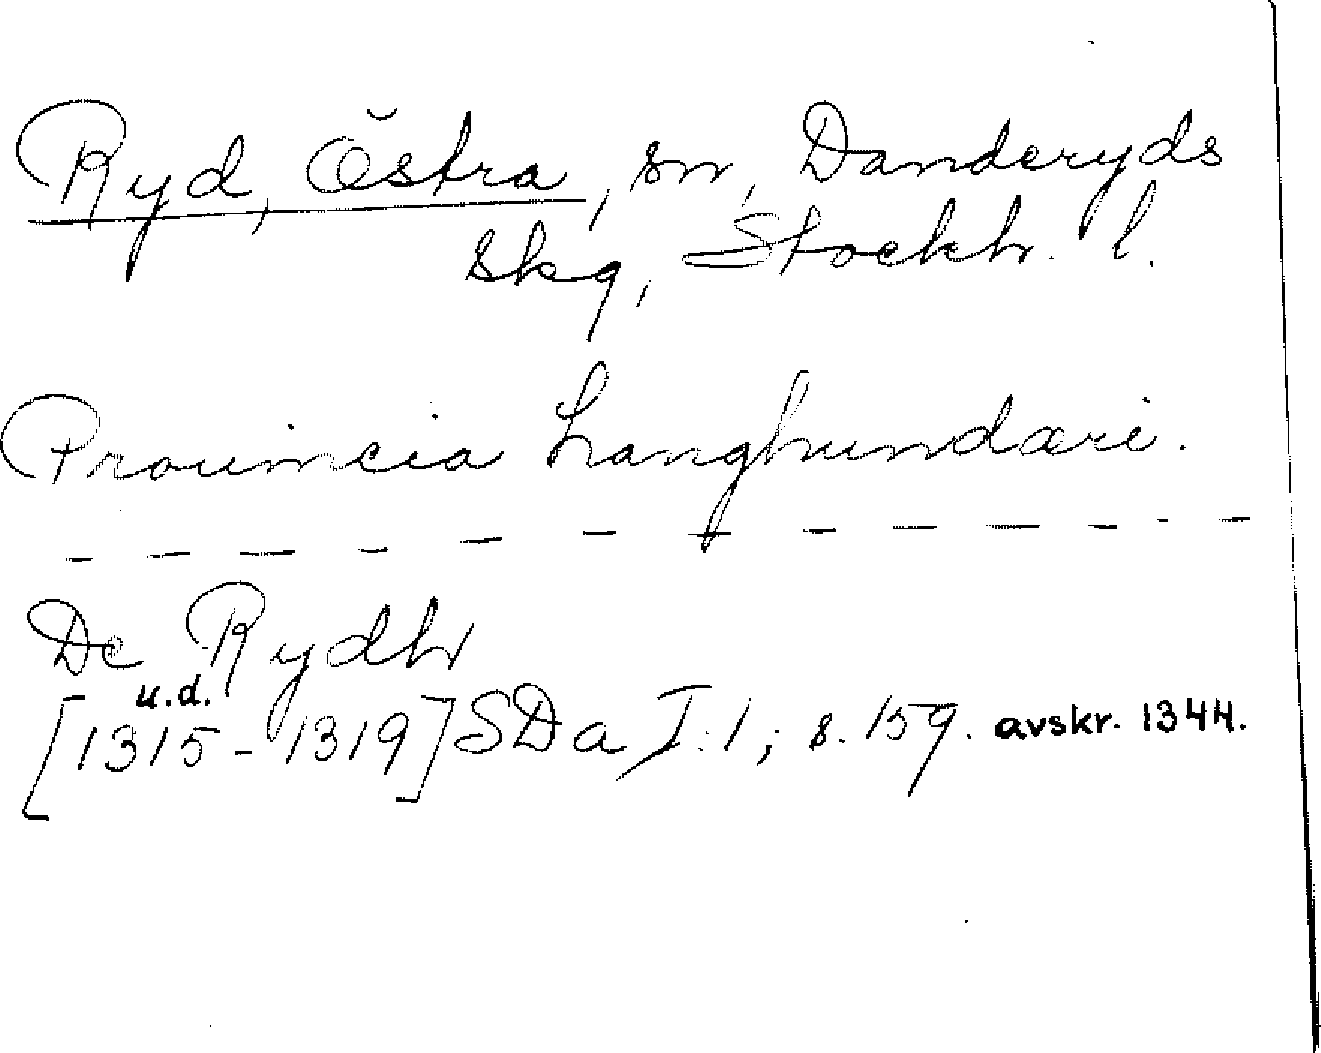 Ryd, Östra, sn, Danderyds
skg, Stockh. l.
Prouincia Langhundæri.
— — — — — — — — — — — —
De Rydh
u.d.
[1315-1319] SDa I:1, s. 159. avskr. 1344.